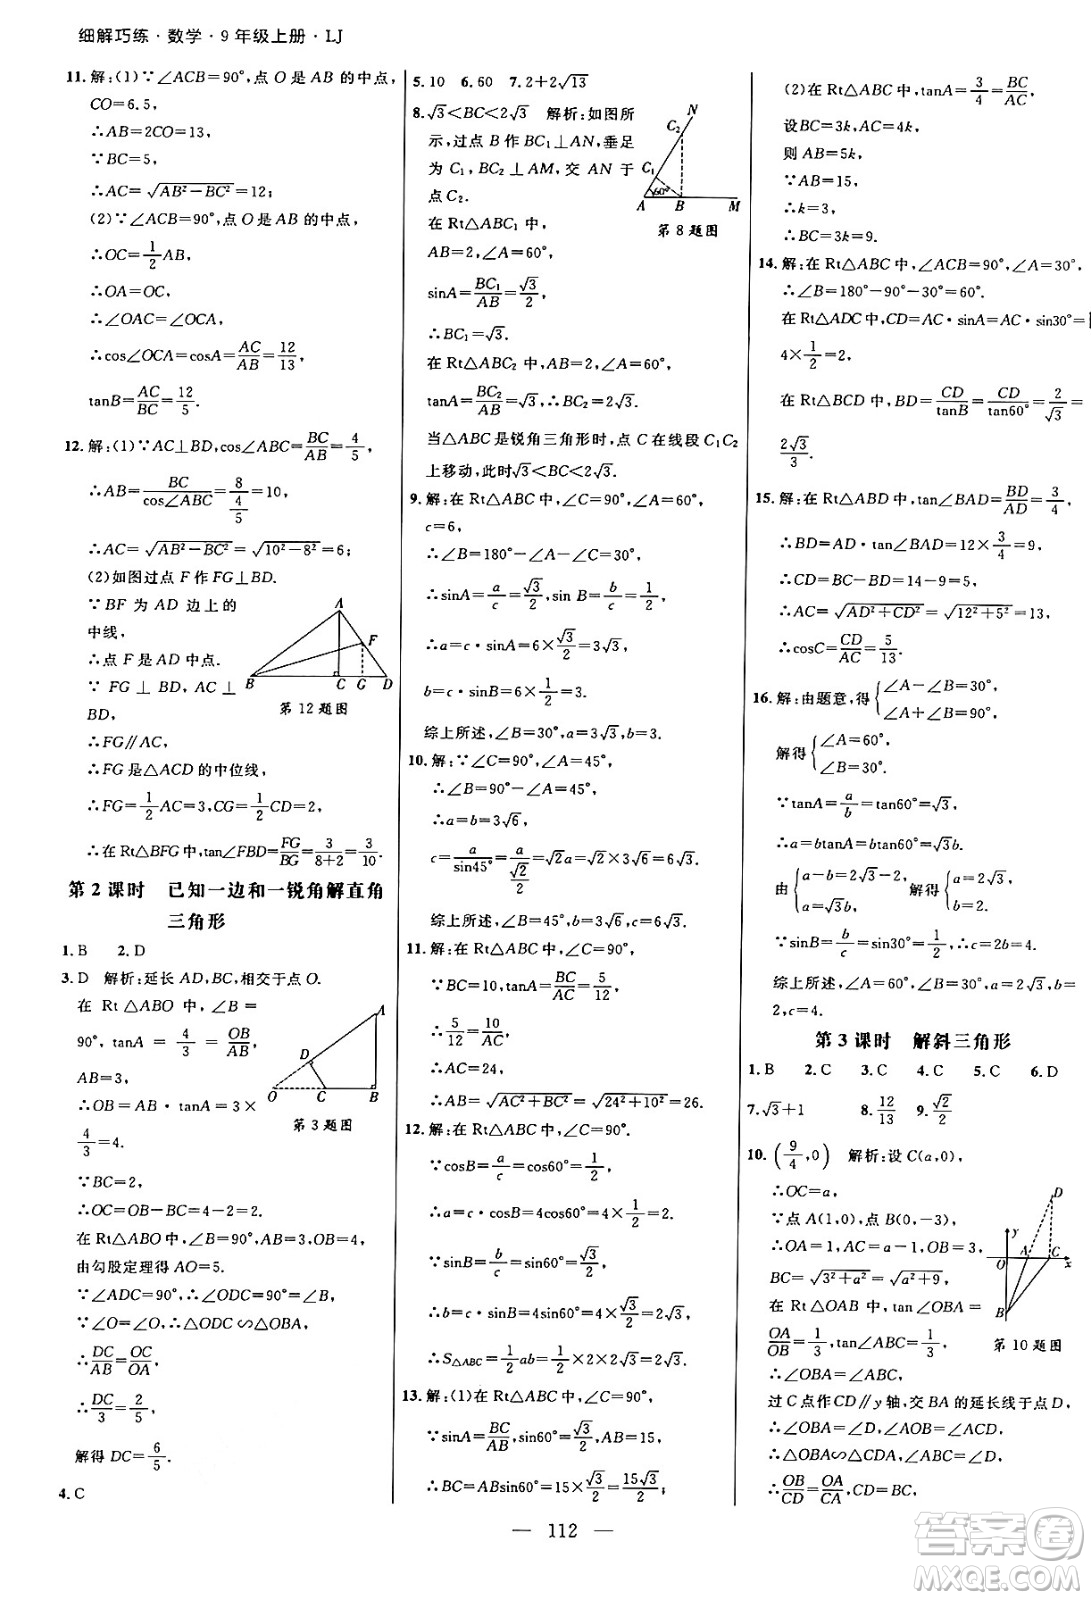 细解巧练·数学·9年级上册·LJ
11.解:(1)∵∠ACB=90°,点O是AB的中点,
CO=6.5,
∴AB=2CO=13,
∵BC=5,
∴AC=√(AB²-BC²)=12;
(2)∵∠ACB=90°,点O是AB的中点,
∴OC=1/2AB,
∴OA=OC,
∴∠OAC=∠OCA,
∴cos∠OCA=cosA=AC/AB=12/13,
tanB=AC/BC=12/5.
12.解:(1)∵AC⊥BD,cos∠ABC=BC/AB=4/5,
∴AB=BC/cos∠ABC=8/(4/5)=10,
∴AC=√(AB²-BC²)=√(10²-8²)=6;
(2)如图过点F作FG⊥BD.
∵BF为AD边上的
中线,
∴点F是AD中点.
∵FG⊥BD,AC⊥
BD,
A F B C G D
第12题图
∴FG∥AC,
∴FG是△ACD的中位线,
∴FG=1/2AC=3,CG=1/2CD=2,
∴在Rt△BFG中,tan∠FBD=FG/BG=3/(8+2)=3/10.
第2课时 已知一边和一锐角解直角
三角形
1.B 2.D
3.D 解析:延长AD,BC,相交于点O.
在Rt△ABO中,∠B=
90°,tanA=4/3=OB/AB,
AB=3,
∴OB=AB·tanA=3×
4/3=4.
A D O C B
第3题图
∵BC=2,
∴OC=OB-BC=4-2=2.
在Rt△ABO中,∠B=90°,
由勾股定理得AO=5.
∵∠ADC=90°,∴∠ODC=90°;
∵∠O=∠O,∴△ODC∽△OBA,
∴DC/AB=OC/OA,
∴DC/3=2/5,
解得DC=6/5.
4.C
5.10 6.60 7.2+2√13
8.√3<BC<2√3 解析:如图所
示,过点B作BC₁⊥AN,垂足
为C₁,BC₂⊥AM,交AN于
点C₂.
N C₂ C₁ 60° A B M
第8题图
在Rt△ABC₁中,
AB=2,∠A=60°,
sinA=BC₁/AB=√3/2,
∴BC₁=√3.
在Rt△ABC₂中,AB=2,∠A=60°,
tanA=BC₂/AB=√3,∴BC₂=2√3.
当△ABC是锐角三角形时,点C在线段C₁C₂
上移动,此时√3<BC<2√3.
9.解:在Rt△ABC中,∠C=90°,∠A=60°,
c=6,
∴∠B=180°-∠A-∠C=30°,
∴sinA=a/c=√3/2,sin B=b/c=1/2,
∴a=c·sinA=6×√3/2=3√3,
b=c·sinB=6×1/2=3.
综上所述,∠B=30°,a=3√3,b=3.
10.解:∵∠C=90°,∠A=45°,
∴∠B=90°-∠A=45°,
∴a=b=3√6,
c=a/sin45°=a/(√2/2)=√2a=√2×3√6=6√3,
综上所述,∠B=45°,b=3√6,c=6√3.
11.解:在Rt△ABC中,∠C=90°,
∵BC=10,tanA=BC/AC=5/12,
∴5/12=10/AC,
∴AC=24,
∴AB=√(AC²+BC²)=√(24²+10²)=26.
12.解:在Rt△ABC中,∠C=90°.
∵cosB=a/c=cos60°=1/2,
∴a=c·cosB=4cos60°=4×1/2=2.
∵sinB=b/c=sin60°=√3/2,
∴b=c·sinB=4sin60°=4×√3/2=2√3,
∴S△ABC=1/2ab=1/2×2×2√3=2√3.
13.解:(1)在Rt△ABC中,∠C=90°,
sinA=BC/AB=sin60°=√3/2,AB=15,
∴BC=ABsin60°=15×√3/2=15√3/2;
(2)在Rt△ABC中,tanA=3/4=BC/AC,
设BC=3k,AC=4k,
则AB=5k,
∵AB=15,
∴k=3,
∴BC=3k=9.
14.解:在Rt△ABC中,∠ACB=90°,∠A=30°,
∴∠B=180°-90°-30°=60°.
在Rt△ADC中,CD=AC·sinA=AC·sin30°=
4×1/2=2,
在Rt△BCD中,BD=CD/tanB=CD/tan60°=2/√3=
2√3/3.
15.解:在Rt△ABD中,tan∠BAD=BD/AD=3/4,
∴BD=AD·tan∠BAD=12×3/4=9,
∴CD=BC-BD=14-9=5,
∴AC=√(AD²+CD²)=√(12²+5²)=13,
∴cosC=CD/AC=5/13.
16.解:由题意,得{∠A-∠B=30°,
∠A+∠B=90°,
解得{∠A=60°,
∠B=30°.
∵tanA=a/b=tan60°=√3,
∴a=btanA=btan60°=√3b.
由{a-b=2√3-2, a=√3b, 解得{a=2√3, b=2.
∵sinB=b/c=sin30°=1/2,∴c=2b=4.
综上所述,∠A=60°,∠B=30°,a=2√3,b=
2,c=4.
第3课时 解斜三角形
1.B 2.C 3.C 4.C 5.C 6.D
7.√3+1 8.12/13 9.√2/2
10.(9/4,0) 解析:设C(a,0),
∴OC=a,
∵点A(1,0),点B(0,-3),
∴OA=1,AC=a-1,OB=3,
BC=√(3²+a²)=√(a²+9),
在Rt△OAB中,tan∠OBA=
OA/OB=1/3,tan∠ABC=1/3,
∴∠OBA=∠ABC,
D y O A C x B
第10题图
过C点作CD∥y轴,交BA的延长线于点D,
∴∠OBA=∠ABC=∠ACD,
∴△OBA∽△CDA,∴∠OBA=∠D,
∴OB/CD=OA/CA,CD=BC,
— 112 —
答案圈